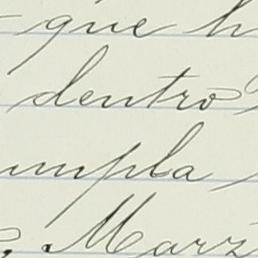 que h
dentro
umpla
, Marz